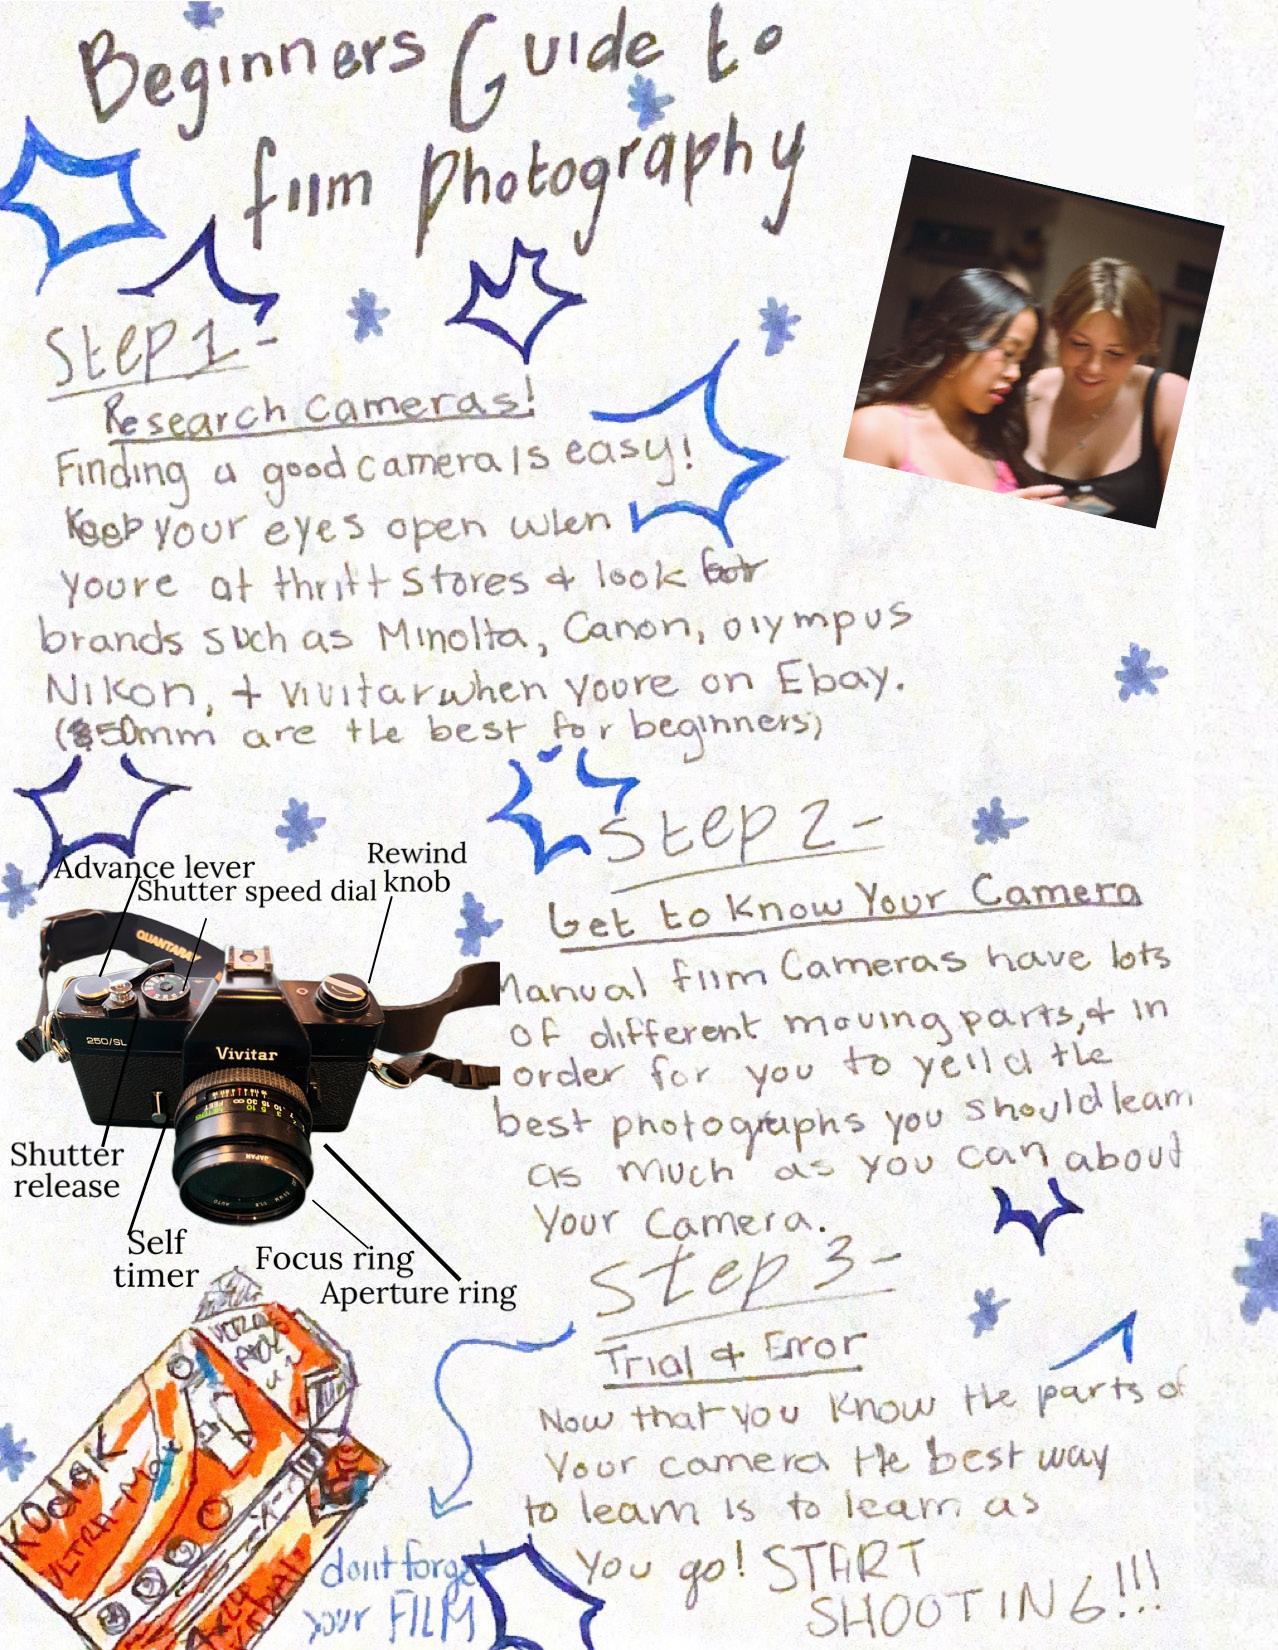 Beginners Guide to
film photography
Step 1-
Research Cameras!
Finding a good camera is easy!
Keep your eyes open when
youre at thrift stores & look for
brands such as Minolta, Canon, olympus
Nikon, + vivitar when youre on Ebay.
(50mm are the best for beginners)
Advance lever
Shutter speed dial
Rewind
knob
QUANTARAY
250/SL
Vivitar
JAPAN
Shutter
release
Self
timer
Focus ring
Aperture ring
Step 2-
Get to Know Your Camera
Manual film Cameras have lots
of different moving parts, & in
order for you to yeild the
best photographs you should learn
as much as you can about
Your Camera.
Step 3-
Trial & Error
Now that you know the parts of
Your camera the best way
to learn is to learn as
you go! START
SHOOTING!!!
Kodak
ULTRA-Max
dont forget
your FILM